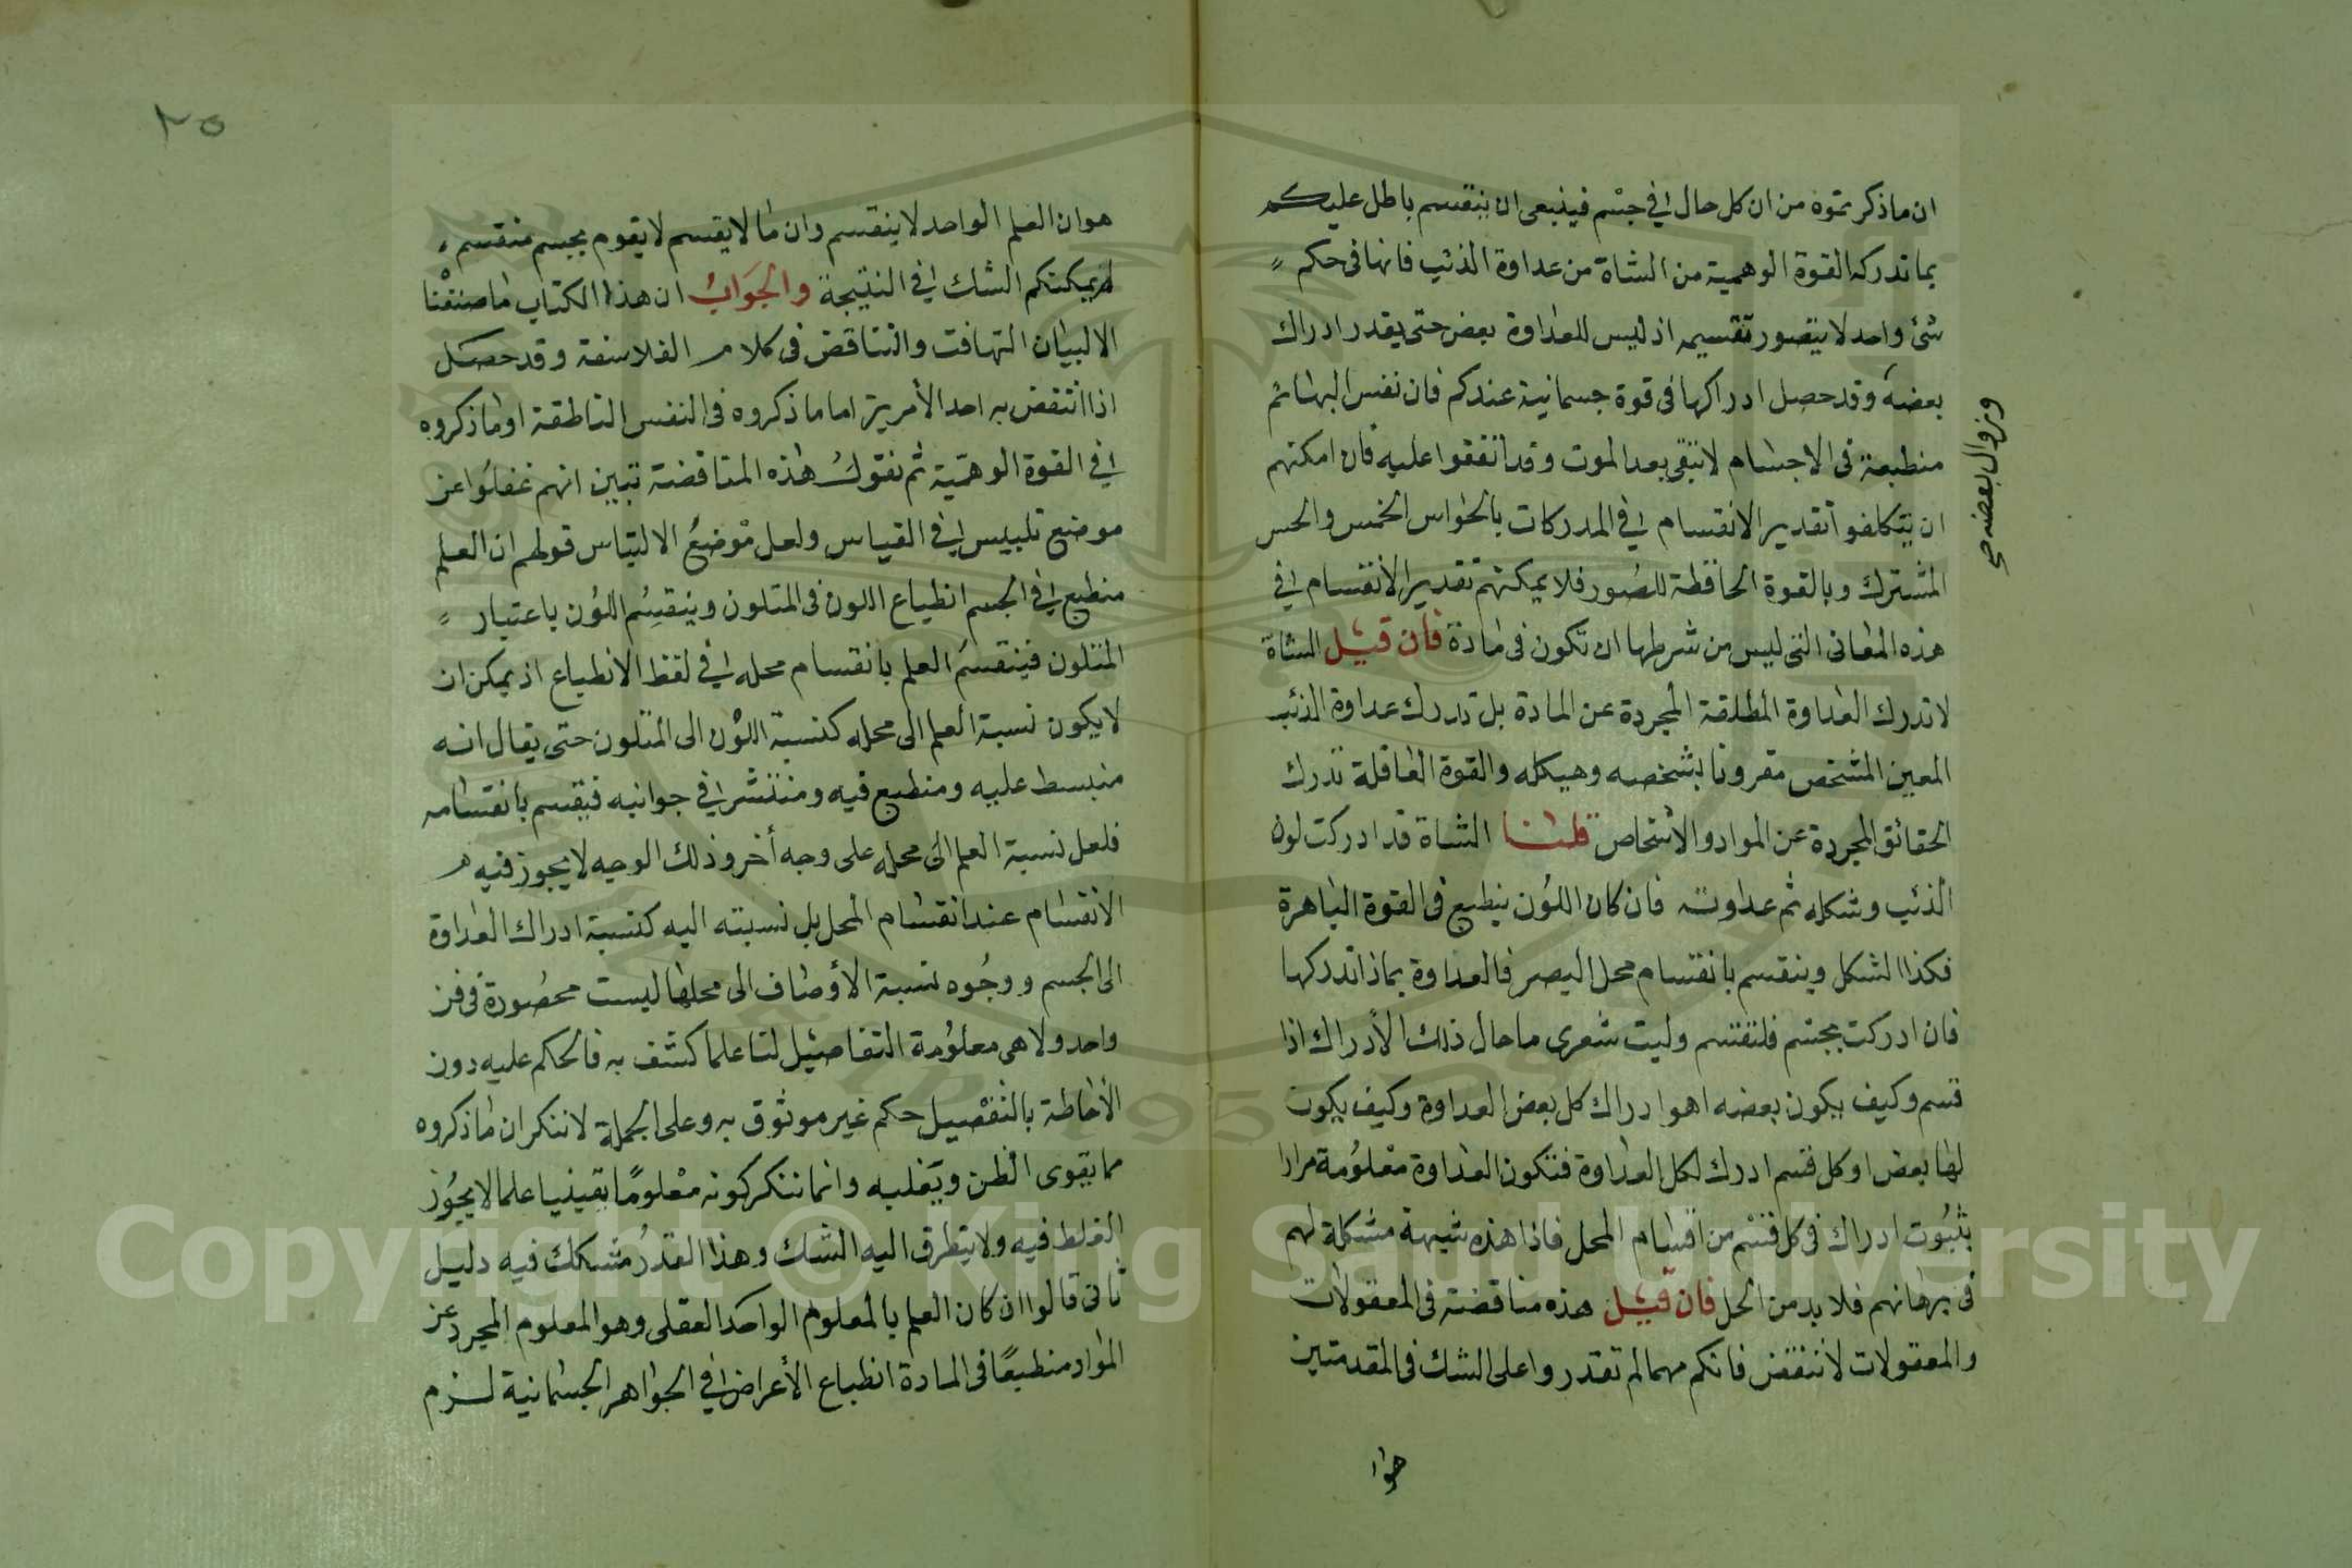 ان ماذكرتموه من ان كل حال في جسم فينبغى ان ينقسم باطل عليكم
بما تدركه القوة الوهمية من الشاة من عداوة الذئب فانها فى حكم
شئ واحد لا يتصور تقسيمه اذ ليس للعداوة بعض حتى يقدر ادراك
بعضه وقد حصل ادراكها فى قوة جسمانية عندكم فان نفس البهائم
وزوال بعضه صح
منطبعة فى الاجسام لا تبقى بعد الموت وقد اتفقوا عليه فان امكنهم
ان يتكلفوا تقدير الانقسام في المدركات بالحواس الخمس والحس
المشترك وبالقوة الحافظة للصور فلا يمكنهم تقدير الانقسام في
هذه المعانى التى ليس من شرطها ان تكون فى مادة فان قيل الشاة
لا تدرك العداوة المطلقة المجردة عن المادة بل تدرك عداوة الذئب
المعين المشخص مقرونا بشخصه وهيكله والقوة العاقلة تدرك
الحقائق المجردة عن المواد والاشخاص قلنا الشاة قد ادركت لون
الذئب وشكله ثم عداوته فان كان اللون ينطبع فى القوة الباهرة
فكذا الشكل وينقسم بانقسام محل البصر فالعداوة بماذا تدركها
فان ادركت بجسم فلتقسم وليت شعرى ما حال ذلك الأدراك اذا
قسم وكيف يكون بعضه اهو ادراك كل بعض العداوة وكيف يكون
لها بعض او كل قسم ادرك لكل العداوة فتكون العداوة معلومة مرارا
بثبوت ادراك فى كل قسم من اقسام المحل فاذا هذه شبهة مشكلة لهم
فى برهانهم فلا بد من الحل فان قيل هذه مناقضة فى المعقولات
والمعقولات لا تنقض فانكم مهما لم تقدروا على الشك فى المقدمتين
هوا
٢٥
هوان العلم الواحد لا ينقسم وان ما لا يقسم لا يقوم بجسم منقسم
لم يمكنكم الشك في النتيجة والجواب ان هذا الكتاب ما صنفنا
الا لبيان التهافت والتناقض فى كلام الفلاسفة وقد حصل
اذا انتقض به احد الأمرين اما ما ذكروه فى النفس الناطقة او ما ذكروه
في القوة الوهمية ثم نقول هذه المناقضة تبين انهم غفلوا عن
موضع تلبيس في القياس ولعل موضع الالتباس قولهم ان العلم
منطبع في الجسم انطباع اللون فى المتلون وينقسم اللون باعتبار
المتلون فينقسم العلم بانقسام محله في لفظ الانطباع اذ يمكن ان
لا يكون نسبة العلم الى محله كنسبة اللون الى المتلون حتى يقال انه
منبسط عليه ومنطبع فيه ومنتشر في جوانبه فيقسم بانقسامه
فلعل نسبة العلم الى محله على وجه أخر وذلك الوجه لا يجوز فيه
الانقسام عند انقسام المحل بل نسبته اليه كنسبة ادراك العداوة
الى الجسم ووجوه نسبة الأوصاف الى محلها ليست محصورة فى فن
واحد ولا هى معلومة التفاصيل لنا علما كشف به فالحكم عليه دون
الأحاطة بالتفصيل حكم غير موثوق به وعلى الجملة لا ننكر ان ما ذكروه
مما يقوى الظن ويغلبه وانما ننكر كونه معلوما يقينيا علما لا يجوز
الغلط فيه ولا يتطرق اليه الشك وهذا القدر مشكك فيه دليل
ثانى قالوا ان كان العلم بالمعلوم الواحد العقلى وهو المعلوم المجرد عن
المواد منطبعا فى المادة انطباع الأعراض في الجواهر الجسمانية لزم
Copyright © King Saud University